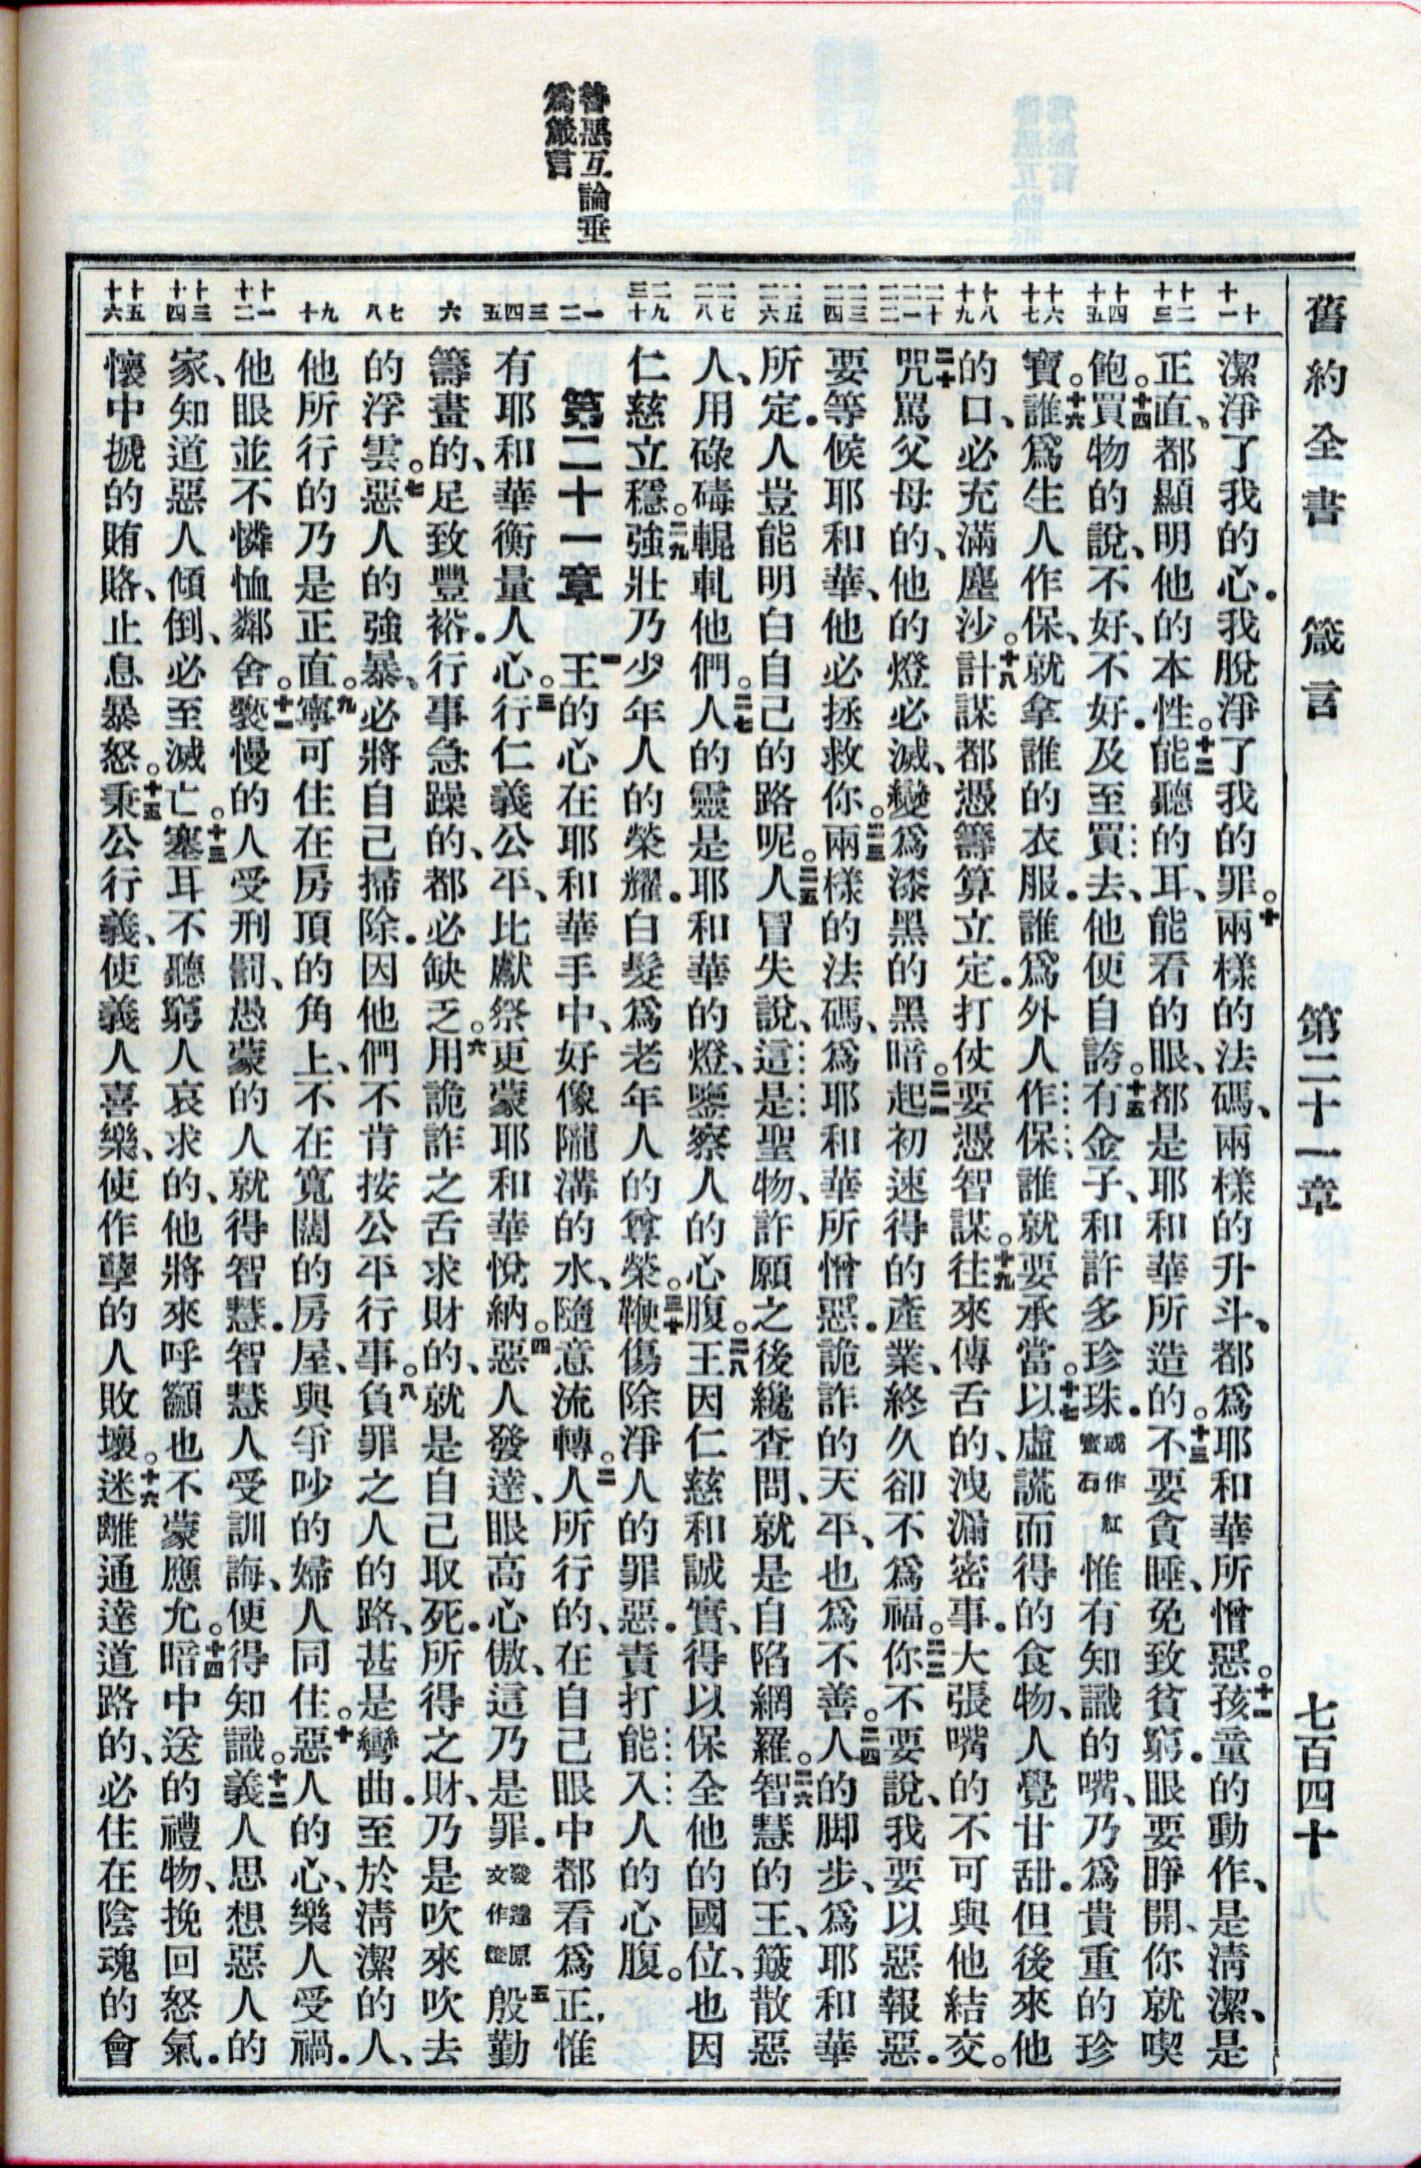 舊約全書 箴言 第二十一章 七百四十
善惡互論垂
爲箴言
十 十一
十二 十三
十四 十五
十六 十七
十八 十九
二十 二一 二二
二三 二四
二五 二六
二七 二八
二九 三十
一 二
三 四 五
六
七 八
九 十
十一 十二
十三 十四
十五 十六
潔淨了我的心．我脫淨了我的罪。十兩樣的法碼、兩樣的升斗、都爲耶和華所憎惡。十一孩童的動作、是淸潔、是
正直、都顯明他的本性。十二能聽的耳、能看的眼、都是耶和華所造的。十三不要貪睡、免致貧窮．眼要睜開、你就喫
飽。十四買物的說、不好、不好．及至買去、他便自誇。十五有金子、和許多珍珠．或作紅寶石惟有知識的嘴、乃爲貴重的珍
寶。十六誰爲生人作保、就拿誰的衣服．誰爲外人作保、誰就要承當。十七以虛謊而得的食物、人覺甘甜．但後來他
的口、必充滿塵沙。十八計謀都憑籌算立定．打仗要憑智謀。十九往來傳舌的、洩漏密事．大張嘴的不可與他結交。
二十咒罵父母的、他的燈必滅、變爲漆黑的黑暗。二一起初速得的產業、終久卻不爲福。二二你不要說、我要以惡報惡．
要等候耶和華、他必拯救你。二三兩樣的法碼、爲耶和華所憎惡．詭詐的天平、也爲不善。二四人的脚步、爲耶和華
所定．人豈能明白自己的路呢。二五人冒失說、這是聖物、許願之後纔査問、就是自陷網羅。二六智慧的王、簸散惡
人、用碌碡輥軋他們。二七人的靈是耶和華的燈、鑒察人的心腹。二八王因仁慈和誠實、得以保全他的國位、也因
仁慈立穩。二九強壯乃少年人的榮耀．白髮爲老年人的尊榮。三十鞭傷除淨人的罪惡．責打能入人的心腹。
第二十一章 一王的心在耶和華手中、好像隴溝的水、隨意流轉。二人所行的、在自己眼中都看爲正．惟
有耶和華衡量人心。三行仁義公平、比獻祭更蒙耶和華悅納。四惡人發達、眼高心傲、這乃是罪．發達原文作燈五殷勤
籌畫的、足致豐裕．行事急躁的、都必缺乏。六用詭詐之舌求財的、就是自己取死．所得之財、乃是吹來吹去
的浮雲。七惡人的強暴、必將自己掃除．因他們不肯按公平行事。八負罪之人的路、甚是彎曲．至於淸潔的人、
他所行的乃是正直。九寧可住在房頂的角上、不在寬闊的房屋、與爭吵的婦人同住。十惡人的心、樂人受禍．
他眼並不憐恤鄰舍。十一褻慢的人受刑罰、愚蒙的人就得智慧．智慧人受訓誨、便得知識。十二義人思想惡人的
家、知道惡人傾倒、必至滅亡。十三塞耳不聽窮人哀求的、他將來呼籲也不蒙應允。十四暗中送的禮物、挽回怒氣．
懷中搋的賄賂、止息暴怒。十五秉公行義、使義人喜樂、使作孽的人敗壞。十六迷離通達道路的、必住在陰魂的會